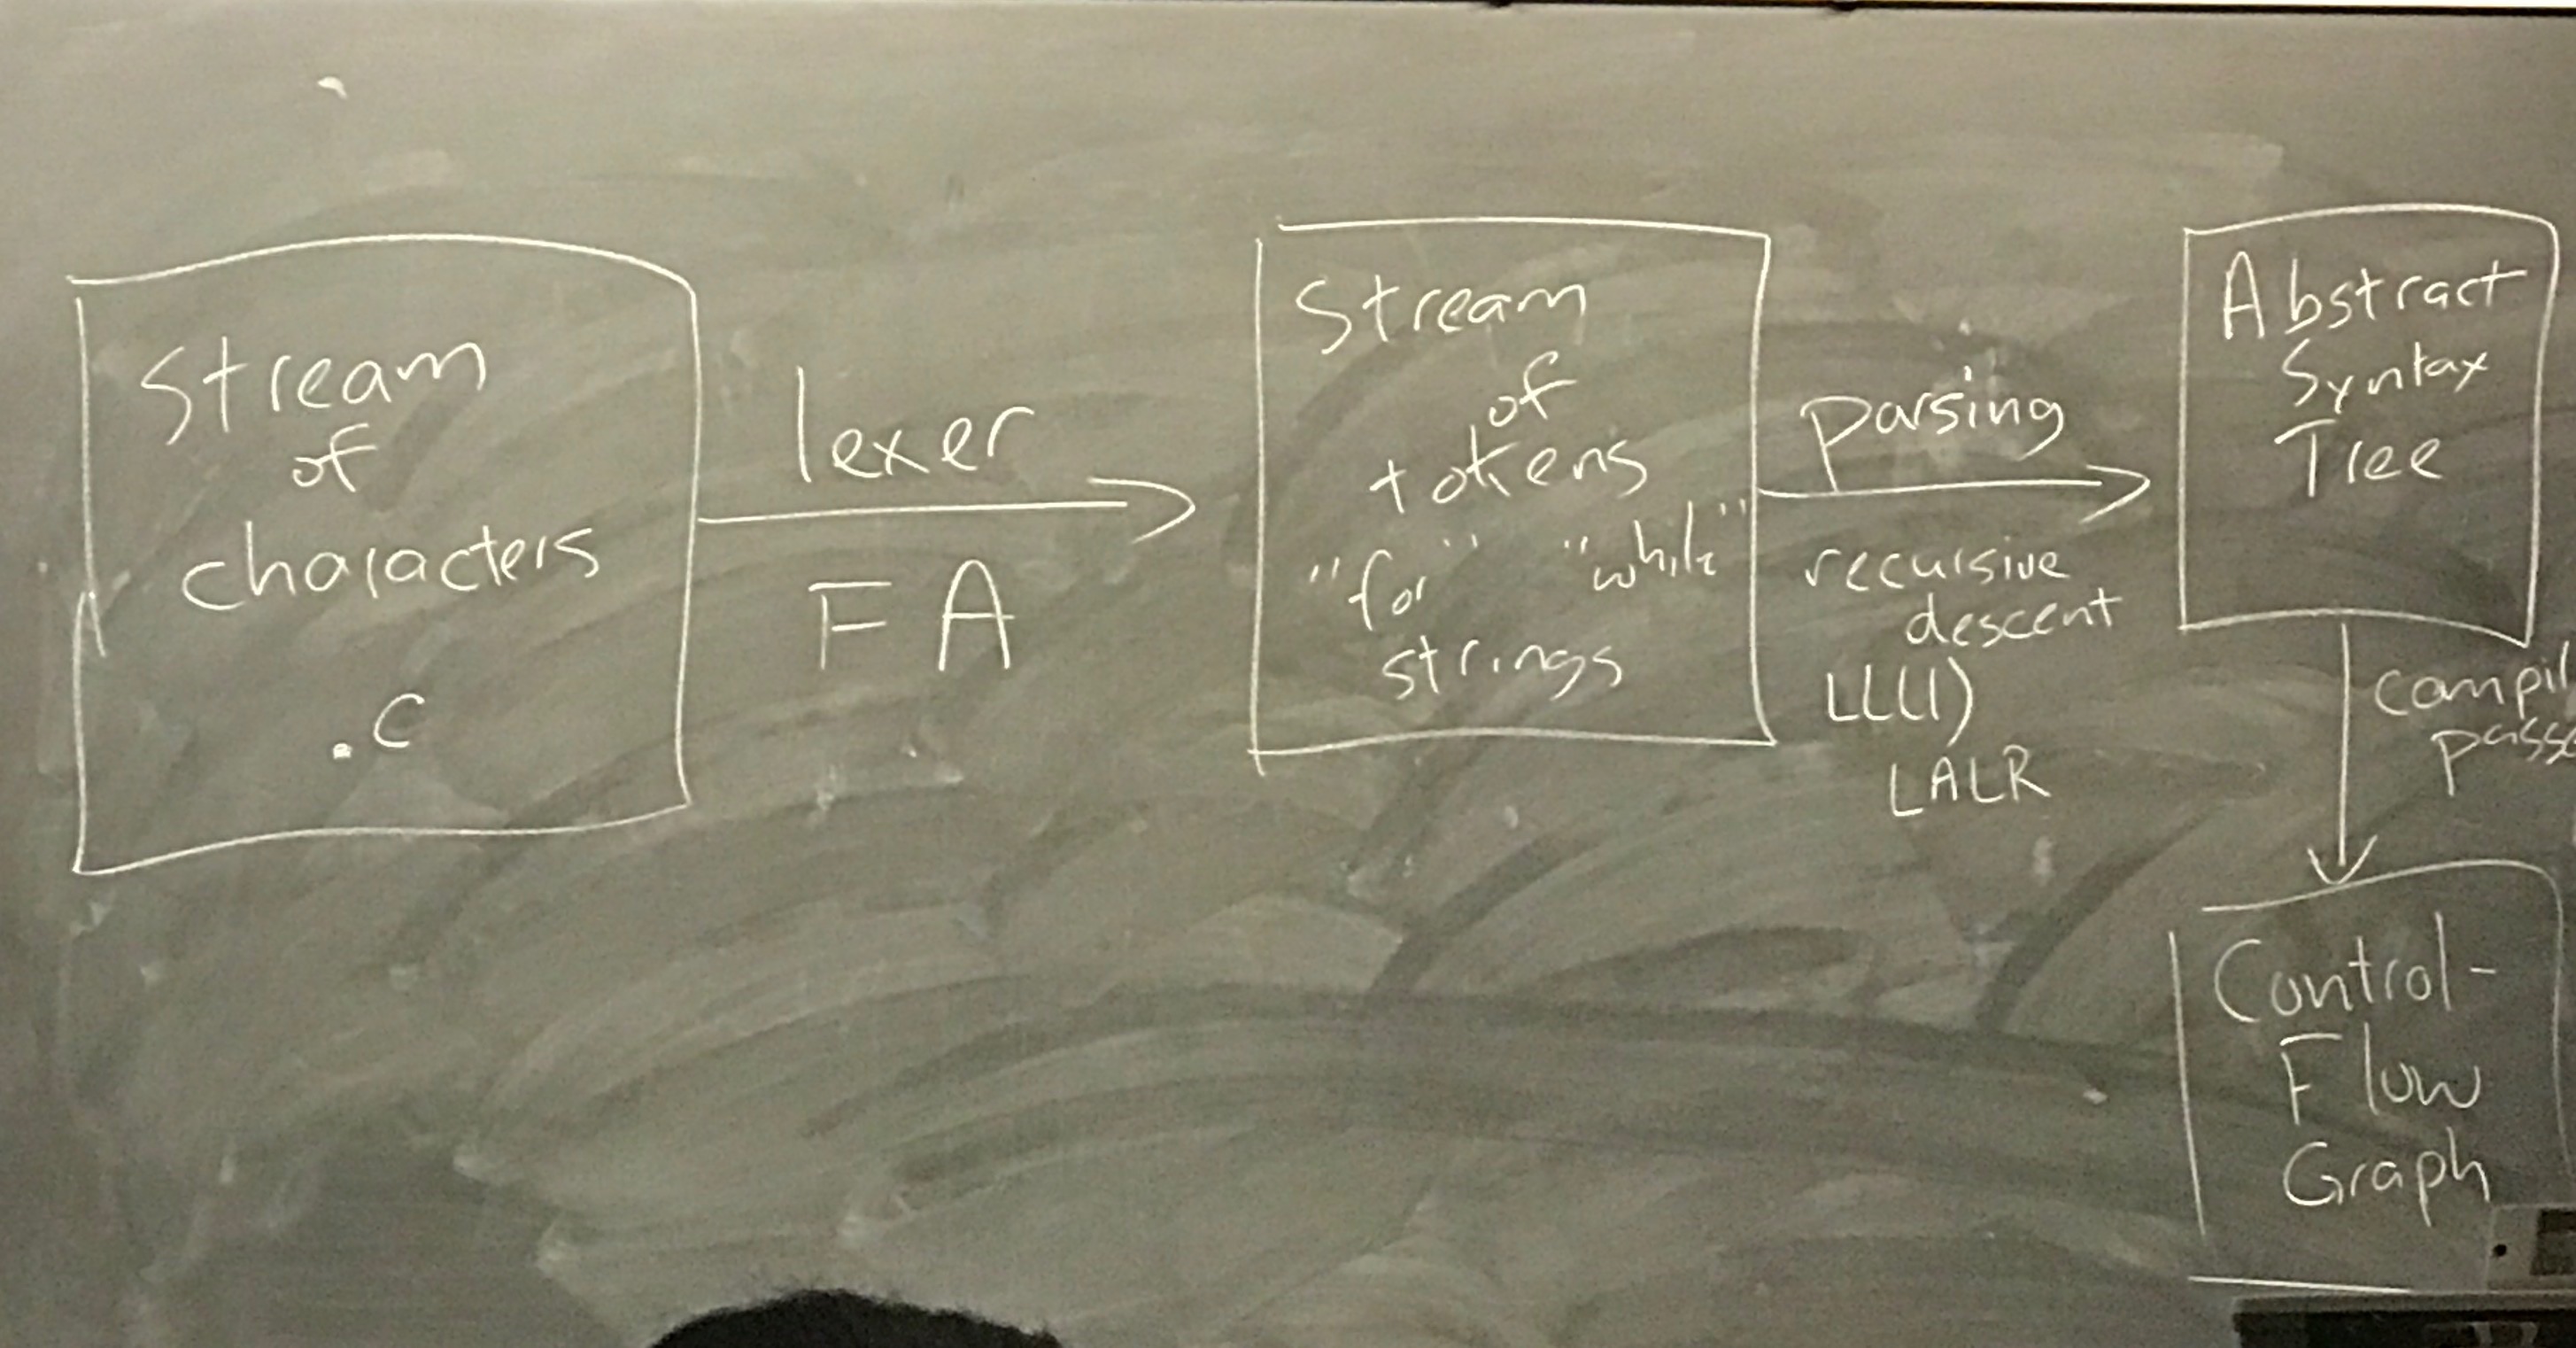 Stream
of
characters
.c
lexer
FA
Stream
of
tokens
"for" "while"
strings
Parsing
recursive
descent
LL(1)
LALR
Abstract
Syntax
Tree
Control-
Flow
Graph